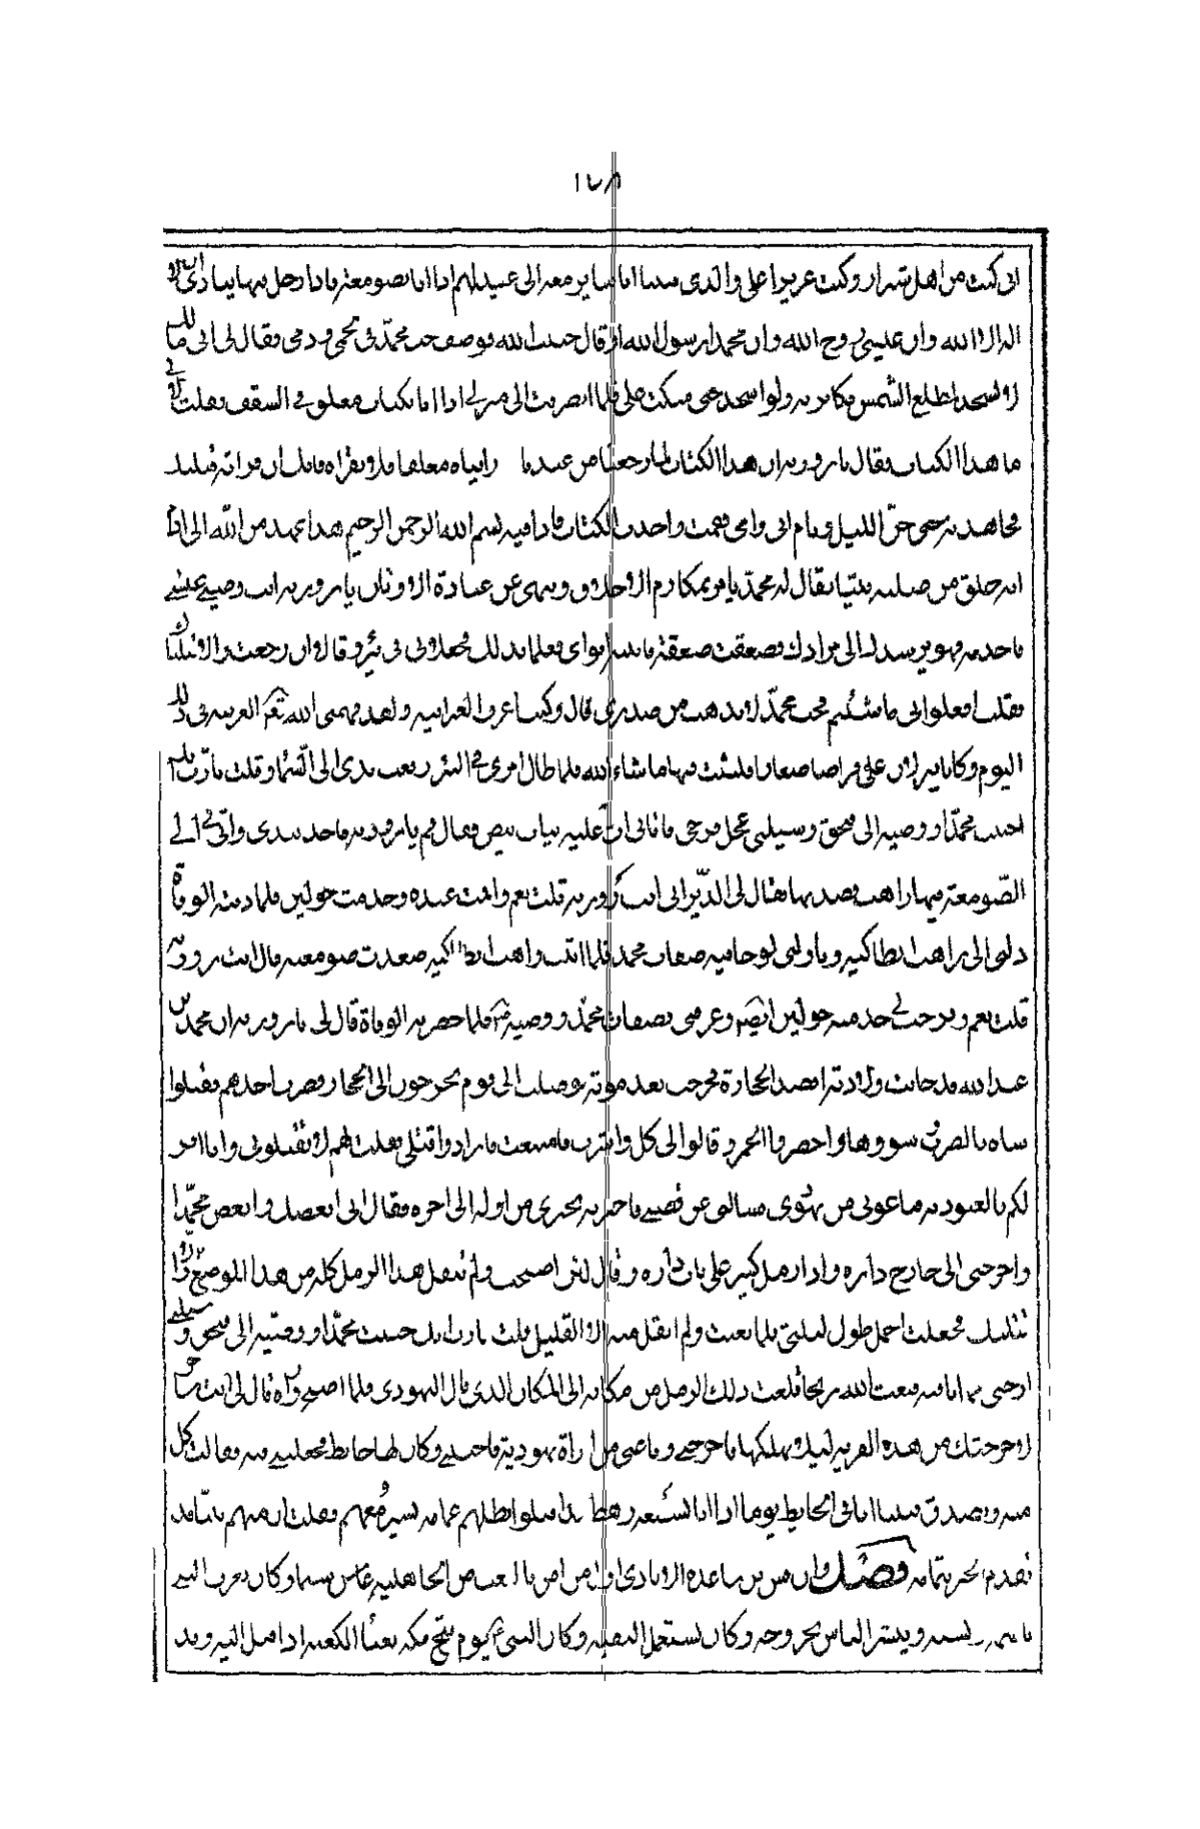 ١٦٨
انى كنت من اهل شيراز وكنت عزيزا على والدى فبينا انا ساير معه الى عيد لهم اذا انا بصومعة فاذا رجل فيها ينادى اشهد ان لا
اله الا الله وان عيسى روح الله وان محمدا رسول الله او قال حبيب الله فوصف حب محمد فى لحمى ودمى فقال لى ابى مالك
لا تسجد لمطلع الشمس فكابرته ولوا سجد حتى سكت على فلما انصرفت الى منزلى اذا انا بكتاب معلق فى السقف فقلت لامى
ما هذا الكتاب فقال يا روزبه ان هذا الكتاب لما رجعنا من عيدنا رايناه معلقا فلا تقراه فانك ان قراته قتلك
فجاهدته حتى جن الليل ونام ابى وامى فقمت واخذت الكتاب فاذا فيه بسم الله الرحمن الرحيم هذا عهد من الله الى ادم
انه خلق من صلبه نبيا يقال له محمد يامر بمكارم الاخلاق وينهى عن عبادة الاوثان يا روزبه انت وصى عيسى
فاخدمه فهو يرشدك الى مرادك فصعقت صعقة فانتبه ابواى فعلما بذلك فجعلونى فى بئر وقالا ان رجعت والا قتلناك
فقلت افعلوا بى ما شئتم فحب محمد لا يذهب من صدرى قال وكنت اعرف العبرانية ولقد فهمنى الله تع العربية فى ذلك
اليوم وكانا ينزلان على قراصا صغارا فلبثت فيها ما شاء الله فلما طال امرى فى البئر رفعت يدى الى السما وقلت يا رب انك
حببت محمدا ووصيه الى فبحق وسيلتى عجل فرجى فاتانى ات عليه ثياب بيض وقال قم يا روزبه فاخذ بيدى واتى بى الى
الصومعة فيها راهب فصعدتها فقال لى الديرانى انت روزبه قلت نعم واقمت عنده وخدمت حولين فلما دنت الوفاة
دلنى الى راهب انطاكية وناولنى لوحا فيه صفات محمد فلما اتيت راهب انطاكية صعدت صومعته قال انت روزبه
قلت نعم ورحب بى خدمته حولين ايضا وعرفنى بصفات محمد ووصيه فلما حضرته الوفاة قال لى يا روزبه ان محمد بن
عبد الله قد حانت ولادته اقصد الحجازة فخرجت بعد موته فوصلت الى قوم يخرجون الى الحجاز وضرب احدهم فقتلوا
شاه بالضرب فشووها واحضروا الخمر وقالوا لى كل واشرب فامتنعت فارادوا قتلى فقلت لهم لا تقتلونى وانا اقر
لكم بالعبودية فباعونى من يهودى فسالنى عن قصتى فاخبرته بخبرى من اوله الى اخره فقال انى ابغضك وابغض محمدا
واخرجنى الى خارج داره واذا رمل كثير على باب داره وقال لئن اصبحت ولم تنقل هذا الرمل كله من هذا الموضع لا
قتلنك فجعلت احمل طول ليلتى فلما تعبت ولم انقل منه الا القليل قلت يا رب انك حببت محمدا ووصيه الى فبحق وسيلته
ارحنى مما انا فيه فبعث الله ريحا قلعت ذلك الرمل من مكانه الى المكان الذى قال اليهودى فلما اصبح وراه قال لى انت ساحر
لاخرجنك من هذه القرية لئلا تهلكها فاخرجنى وباعنى من امراة يهودية فاحبتنى وكان لها حايط فجعلتنى فيه وقالت كل
منه وتصدق فبينا انا فى الحايط يوما اذا انا بسبعة رهط قد اقبلوا تظلهم غمامة تسير معهم وقلت ان فيهم نبيا قد
تقدم الخبر بتمامه فصل وان قس بن ساعدة الايادى اول من امن بالبعث من الجاهلية عاش ستما وكان يعرف النبى
باسمه ونسبه ويبشر الناس بخروجه وكان يستعمل التقيه وكان النبى يوم فتح مكة بفناء الكعبه اذا اقبل اليه وفد